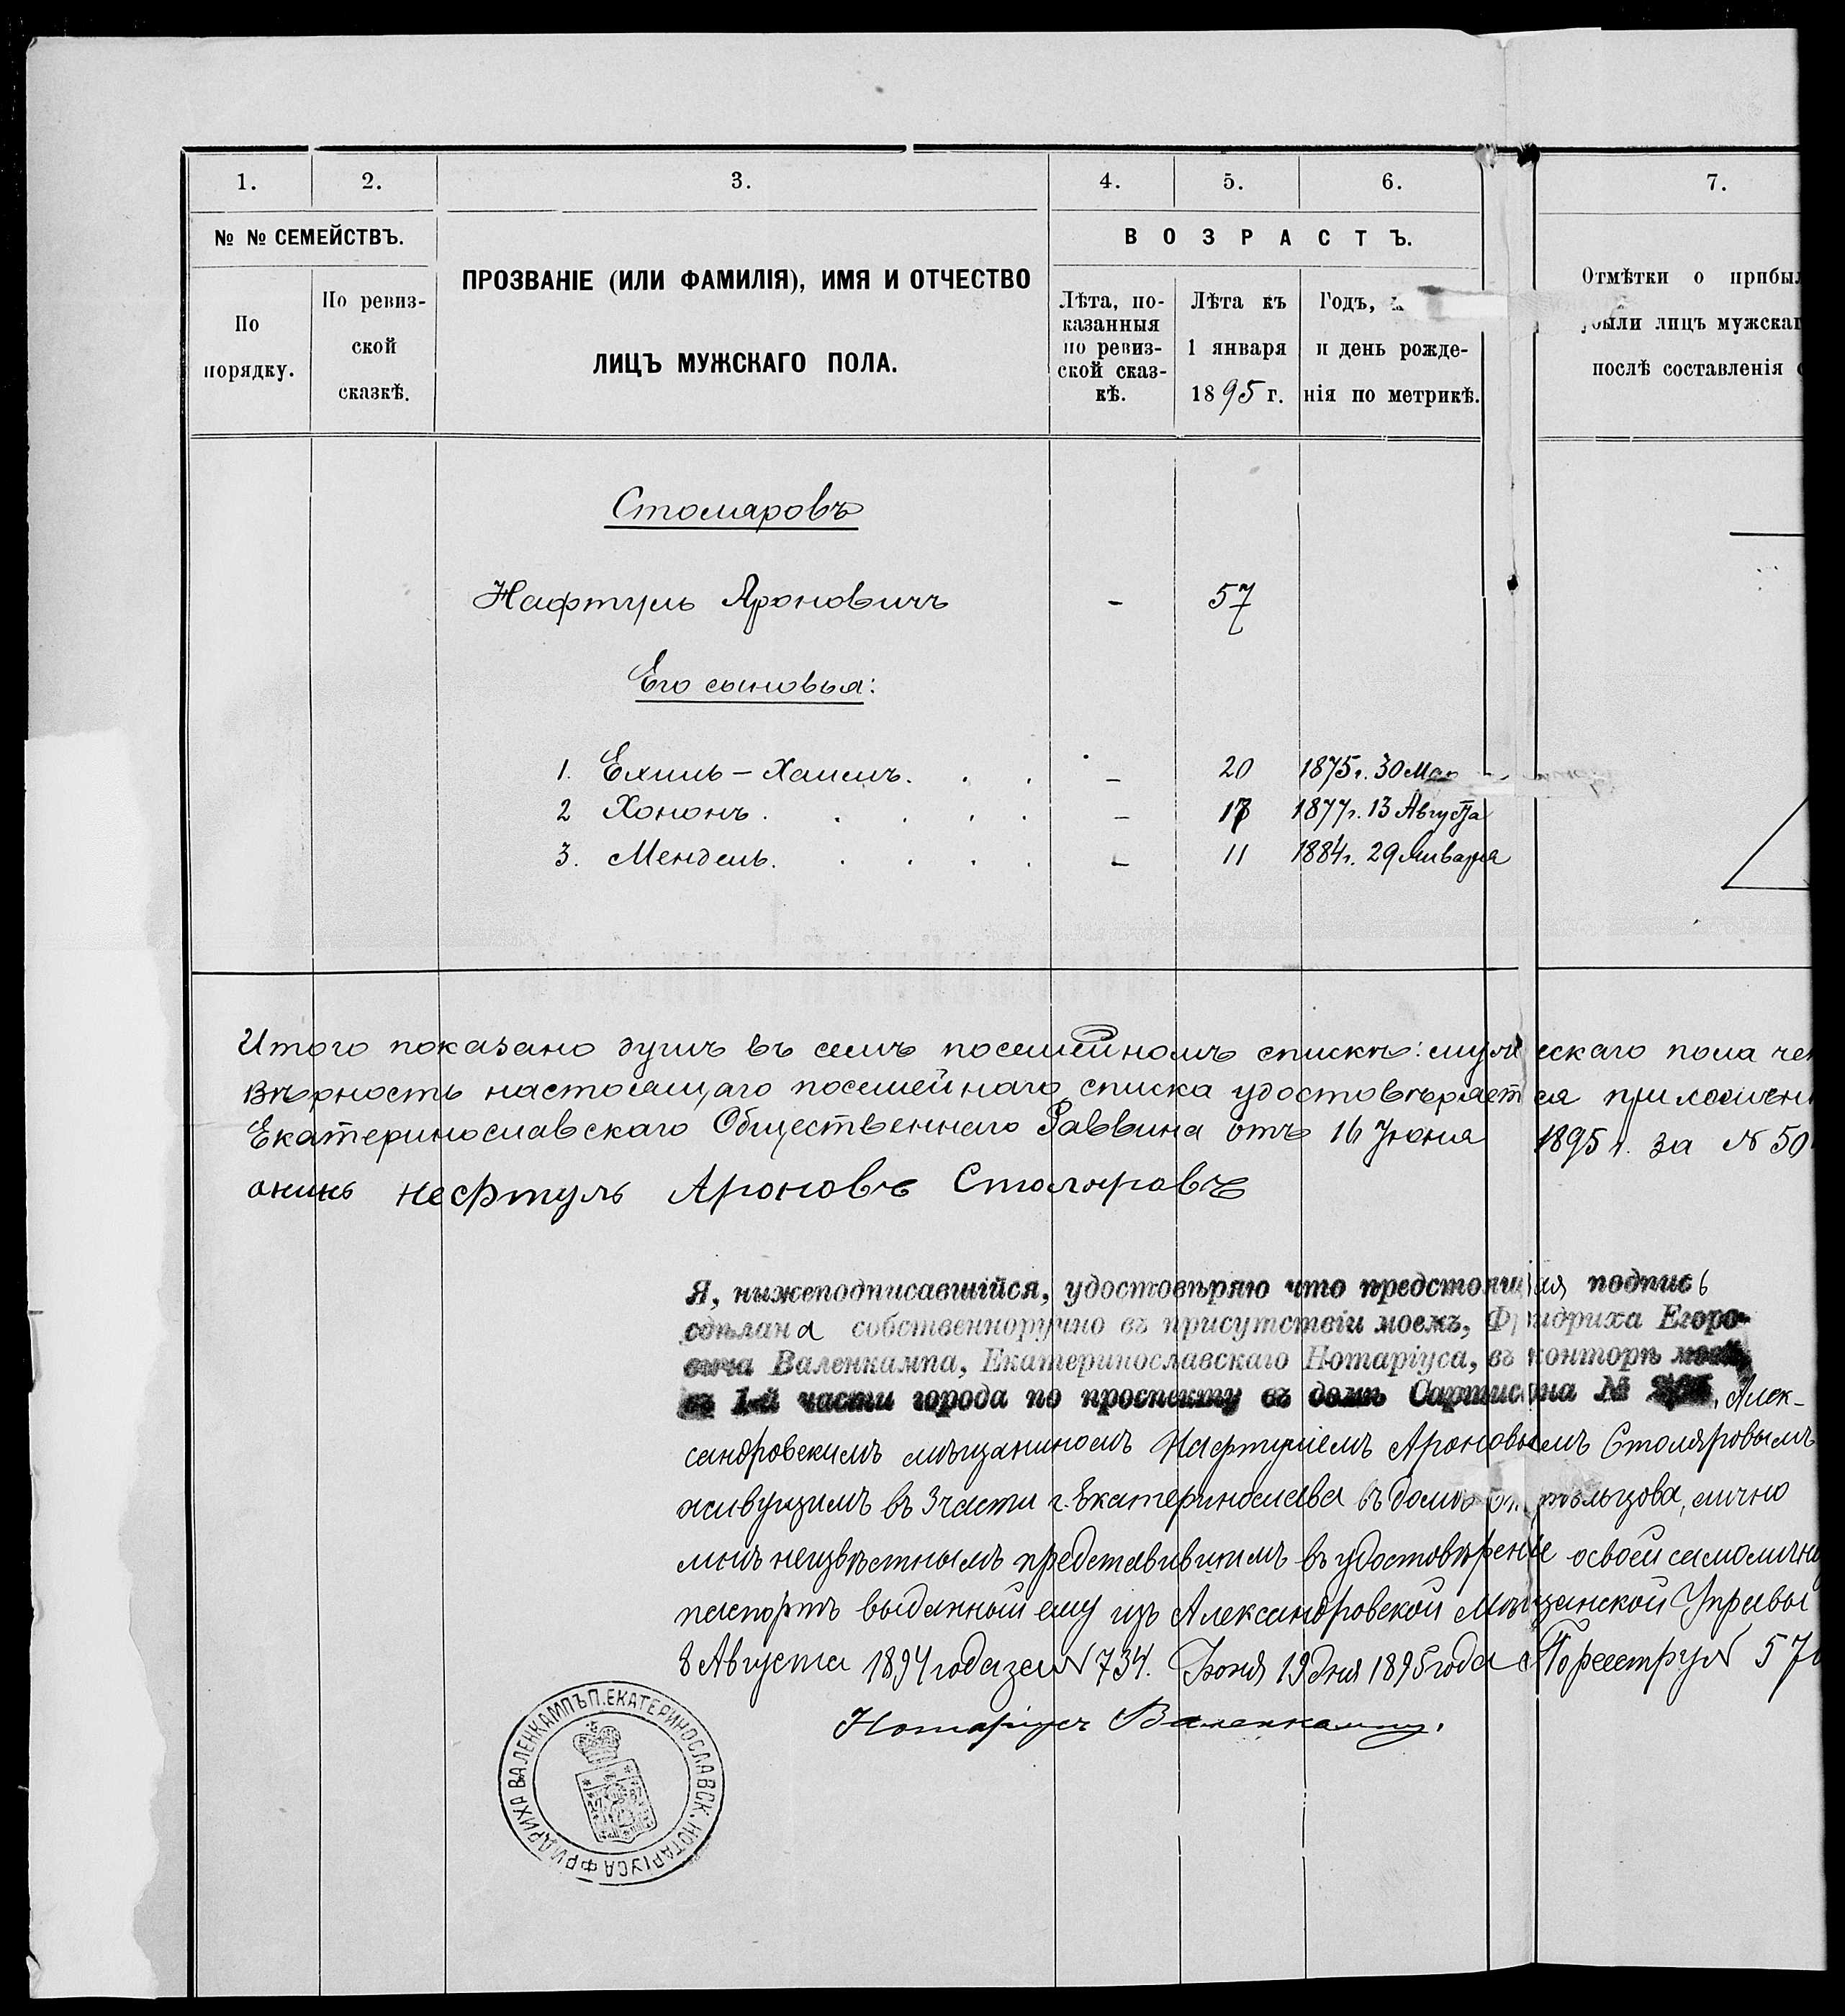 1. 2. 3. 4. 5. 6. 7.
№ № СЕМЕЙСТВЪ.
По порядку.
По ревиз-
ской
сказкѣ.
ПРОЗВАНІЕ (ИЛИ ФАМИЛІЯ), ИМЯ И ОТЧЕСТВО
ЛИЦЪ МУЖСКАГО ПОЛА.
ВОЗРАСТЪ.
Лѣта, по-
казанныя
по ревиз-
ской сказ-
кѣ.
Лѣта къ
1 января
1895 г.
Годъ,
и день рожде-
нія по метрикѣ.
Отмѣтки о прибыл
были лицъ мужскаг
послѣ составленія с
Столяровъ
Нафтуль Ароновичъ - 57
Его сыновья:
1. Ехиль-Хаимъ. - 20 1875 г. 30 Мая
2 Хононъ. - 17 1877 г. 13 Августа
3. Мендель. - 11 1884 г. 29 Января
Итого показано душъ въ семъ посемейномъ спискѣ: мужескаго пола че
Вѣрность настоящаго посемейнаго списка удостовѣряется приложен
Екатеринославскаго Общественнаго Раввина отъ 16 Іюня 1895 г. за № 50
анинъ Нефтуль Ароновъ Столяровъ
Я, нижеподписавшійся, удостовѣряю что предстоящая подпись
сдѣлана собственноручно въ присутствіи моемъ, Фридриха Егоро-
вича Валенкампа, Екатеринославскаго Нотаріуса, въ конторѣ моей,
въ 1-й части города по проспекту въ домѣ Сартисона № Алек-
сандровскимъ мѣщаниномъ Нафтулемъ Ароновымъ Столяровымъ
живущимъ въ 3 части г. Екатеринослава въ домѣ лично
мнѣ неизвѣстнымъ представившимъ въ удостовѣреніе о своей самоличн
паспортъ выданный ему изъ Александровской Мѣщанской Управы
8 Августа 1894 года за № 734. Іюня 19 дня 1895 года По реестру № 57
Нотаріусъ Валенкампъ.
ПЕЧ. ЕКАТЕРИНОСЛАВСК. НОТАРІУСА ФРИДРИХА ВАЛЕНКАМПЪ